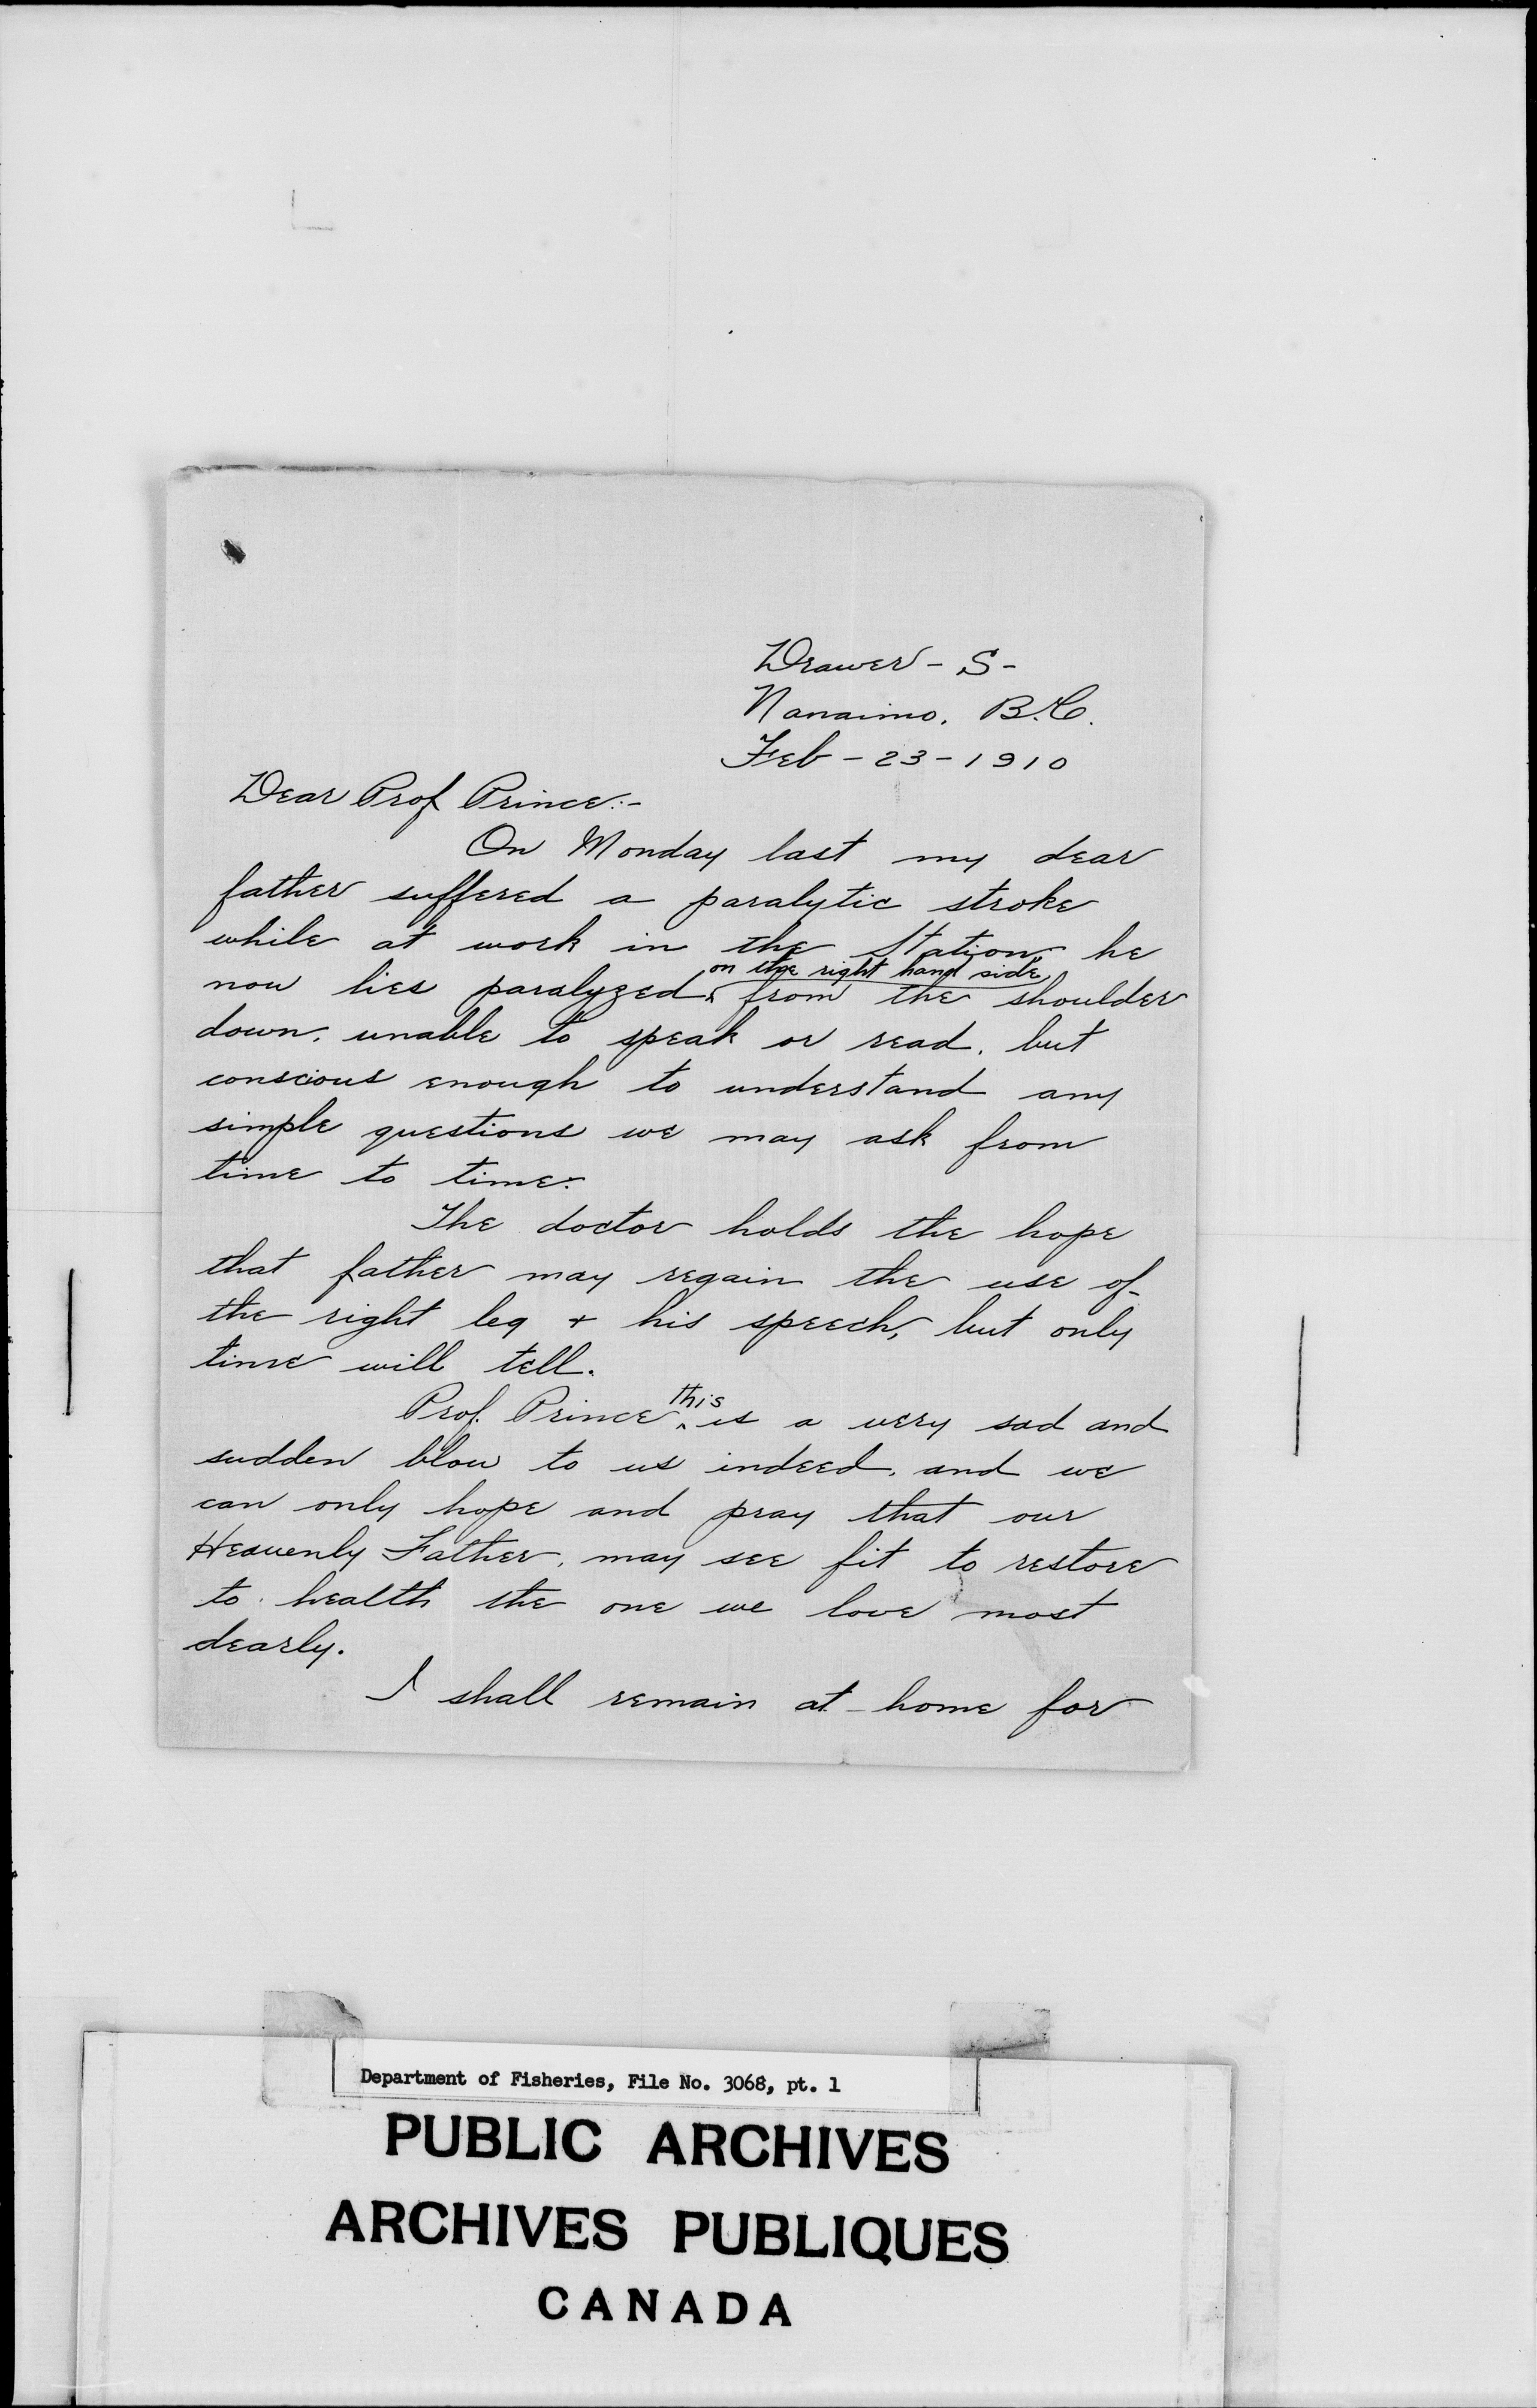 Drawer - S -
Nanaimo. B.C.
Feb - 23 - 1910
Dear Prof Prince:-
On Monday last my dear
father suffered a paralytic stroke
while at work in the Station, he
on the right hand side
now lies paralyzed ‸ from the shoulder
down, unable to speak or read, but
conscious enough to understand any
simple questions we may ask from
time to time.
The doctor holds the hope
that father may regain the use of
the right leg + his speech, but only
time will tell.
this
Prof. Prince ‸ is a very sad and
sudden blow to us indeed, and we
can only hope and pray that our
Heavenly Father, may see fit to restore
to health the one we love most
dearly.
I shall remain at home for
Department of Fisheries, File No. 3068, pt. 1
PUBLIC ARCHIVES
ARCHIVES PUBLIQUES
CANADA